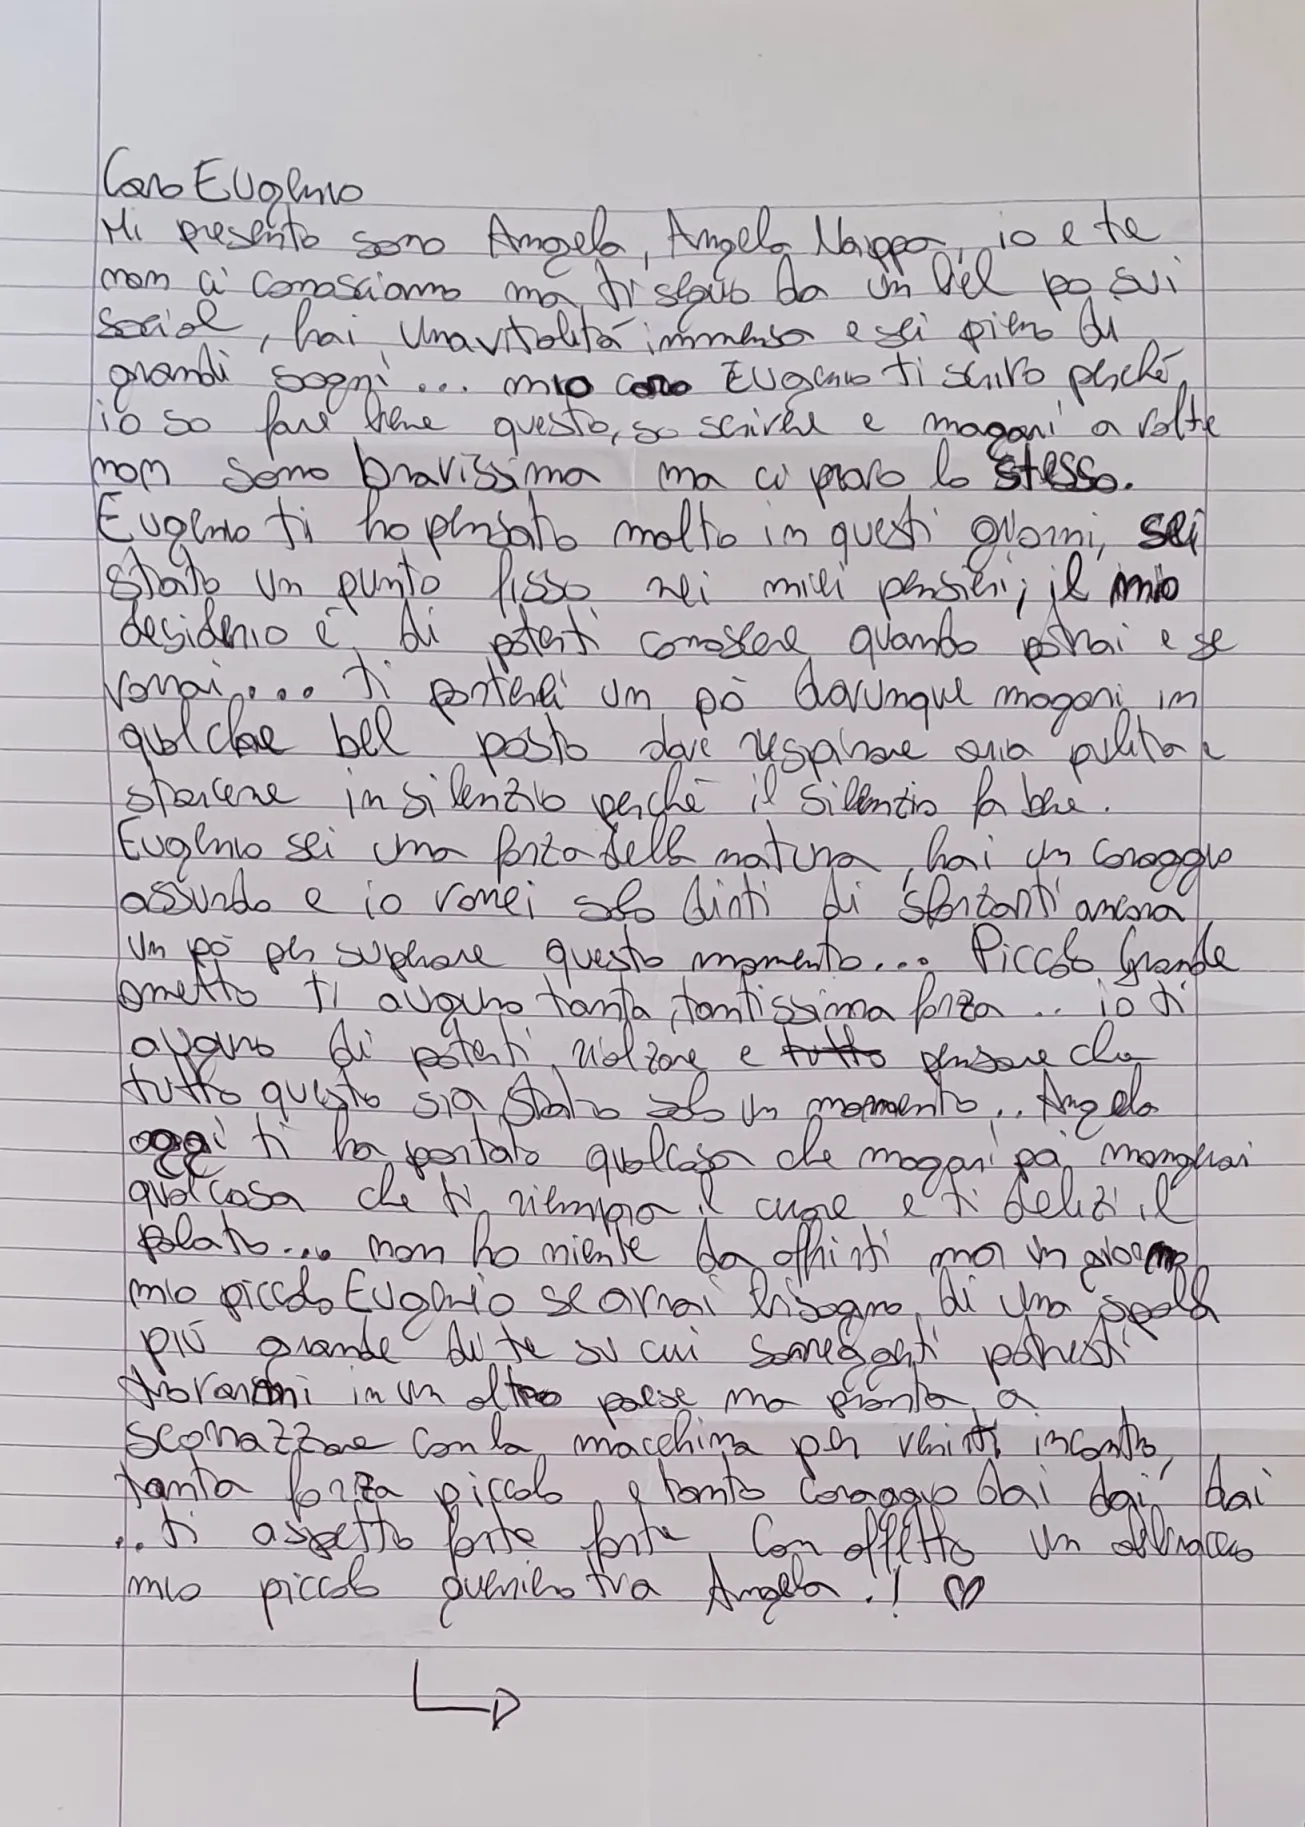 Caro Eugenio
Mi presento sono Angela, Angela Nappa, io e te
non ci conosciamo ma ti seguo da un bel po sui
social, hai una vitalità immensa e sei pieno di
grandi sogni... mio caro Eugenio ti scrivo perché
io so fare bene questo, so scrivere e magari a volte
non sono bravissima ma ci provo lo stesso.
Eugenio ti ho pensato molto in questi giorni, sei
stato un punto fisso nei miei pensieri, il mio
desiderio è di poterti conoscere quando potrai e se
vorrai.... ti porterei un pò dovunque magari in
qualche bel posto dove respirare aria pulita e
starcene in silenzio perché il silenzio fa bene.
Eugenio sei una forza della natura, hai un coraggio
assurdo e io vorrei solo dirti di sforzarti ancora
un pò per superare questo momento... Piccolo Grande
ometto ti auguro tanta, tantissima forza .. io ti
auguro di poterti rialzare e tutto pensare che
tutto questo sia stato solo un momento.. Angela
oggi ti ha portato qualcosa che magari poi mangerai
qualcosa che ti riempia il cuore e ti delizi il
palato... non ho niente da offrirti ma un giorno
mio piccolo Eugenio se avrai bisogno di una spalla
più grande di te su cui sorreggerti potresti
trovarmi in un altro paese ma pronta a
scorrazzare con la macchina per venirti incontro,
tanta forza piccolo e tanto coraggio dai dai dai
.. ti aspetto forte forte Con affetto un abbraccio
mio piccolo guerriero tua Angela.! ♡